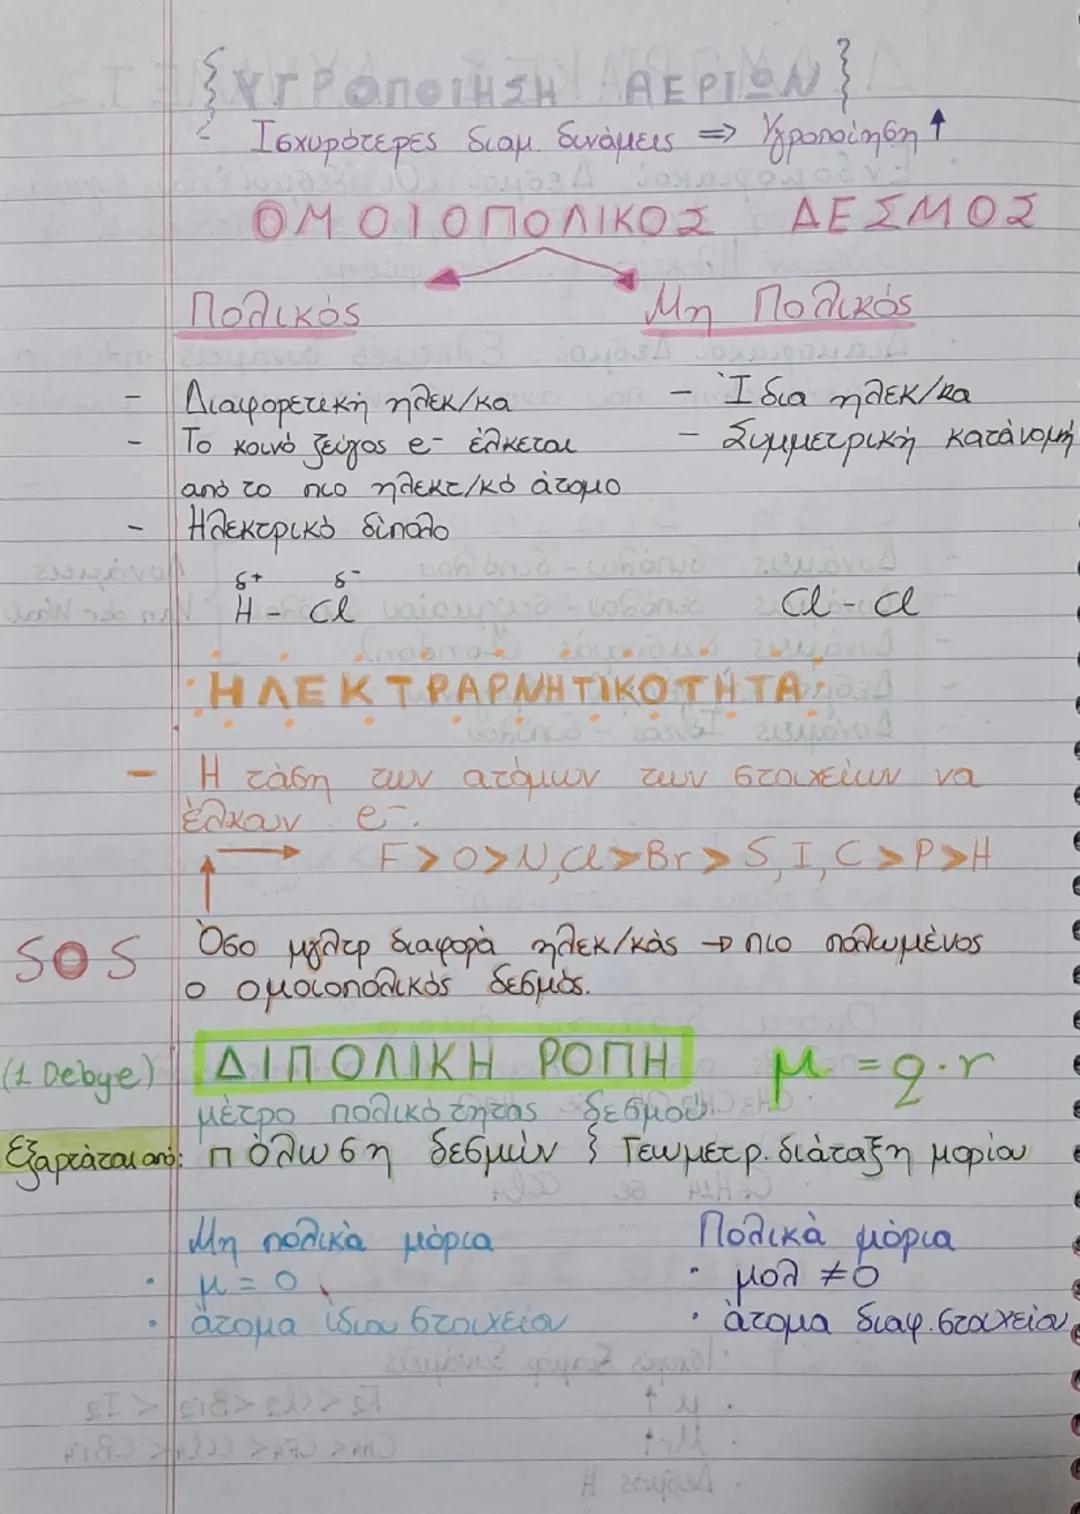 {ΥΓΡΟΠΟΙΗΣΗ ΑΕΡΙΩΝ}
Ισχυρότερες διαμ. δυνάμεις => Υγροποίηση ↑
ΟΜΟΙΟΠΟΛΙΚΟΣ ΔΕΣΜΟΣ
Πολικός
Μη Πολικός
- Διαφορετική ηλεκ/κα
- Το κοινό ζεύγος e- έλκεται
από το πιο ηλεκτ/κό άτομο
- Ηλεκτρικό δίπολο
δ+ δ-
H - Cl
- Ίδια ηλεκ/κα
- Συμμετρική κατάνομή
Cl - Cl
ΗΛΕΚΤΡΑΡΝΗΤΙΚΟΤΗΤΑ
- Η τάση των ατόμων των στοιχείων να
έλκουν e-.
→ F > O > N, Cl > Br > S, I, C > P > H
↑
SOS Όσο μγλτρ διαφορά ηλεκ/κάς → πιο πολωμένος
ο ομοιοπολικός δεσμός.
(1 Debye) ΔΙΠΟΛΙΚΗ ΡΟΠΗ μ = q·r
μέτρο πολικότητας δεσμού.
Εξαρτάται από: πόλωση δεσμών } Γεωμετρ. διάταξη μορίου
Μη πολικά μόρια
• μ = 0
• άτομα ίδιου στοιχείου
Πολικά μόρια
• μολ ≠ 0
• άτομα διαφ. στοιχείου